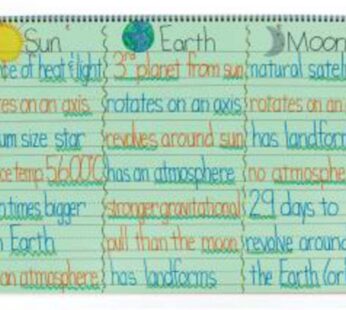 Sun
ce of heat & light
tes on an axis
um size star
ce temp. 5600C
times bigger
n Earth
an atmosphere
Earth
3rd planet from sun
rotates on an axis
revolves around sun
has an atmosphere
stronger gravitational
pull than the moon
has landforms
Moon
natural satel
rotates on an
has landform
no atmosphe
29 days to
revolve around
the Earth (or